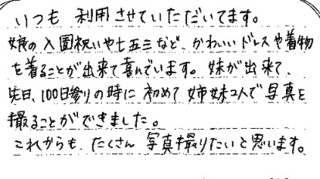 いつも 利用させていただいてます。
娘の入園祝いや七五三など、かわいいドレスや着物
を着ることが出来て喜んでいます。妹が出来て、
先日、100日参りの時に初めて姉妹2人で写真を
撮ることができました。
これからも、たくさん写真撮りたいと思います。